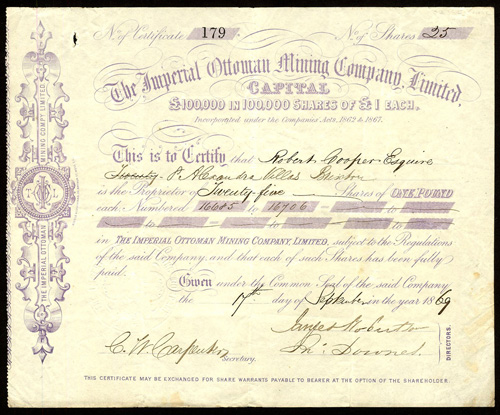 Nº of Certificate 179 Nº of Shares 25
The Imperial Ottoman Mining Company, Limited,
CAPITAL
£100,000 IN 100,000 SHARES OF £1 EACH.
Incorporated under the Companies' Acts, 1862 & 1867.
This is to Certify that Robert Cooper Esquire
Alexandra Villas
is the Proprietor of Twenty-five Shares of ONE POUND
each Numbered to 16706 to
to to to
in THE IMPERIAL OTTOMAN MINING COMPANY, LIMITED, subject to the Regulations
of the said Company, and that each of such Shares has been fully
paid.
Given under the Common Seal of the said Company
the 17th day of September in the year 1869
James Robertson
C. W. Carpenter
Secretary.
Jnº Downes
DIRECTORS.
THIS CERTIFICATE MAY BE EXCHANGED FOR SHARE WARRANTS PAYABLE TO BEARER AT THE OPTION OF THE SHAREHOLDER.
THE IMPERIAL OTTOMAN MINING COMPY LIMITED